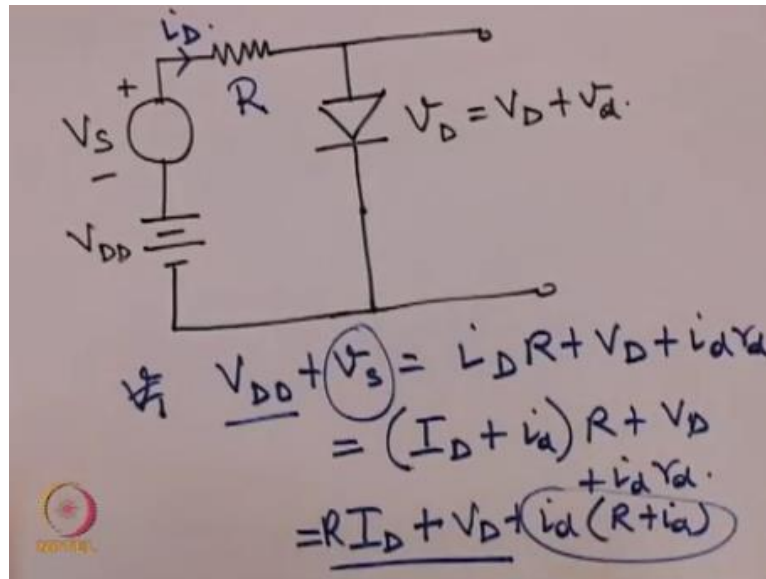 i_D.
+
R
V_S
v_D = V_D + v_d.
−
V_DD
V_DD + v_s = i_D R + V_D + i_d r_d
= (I_D + i_d) R + V_D
+ i_d r_d.
= R I_D + V_D + i_d (R + i_d)
NPTEL